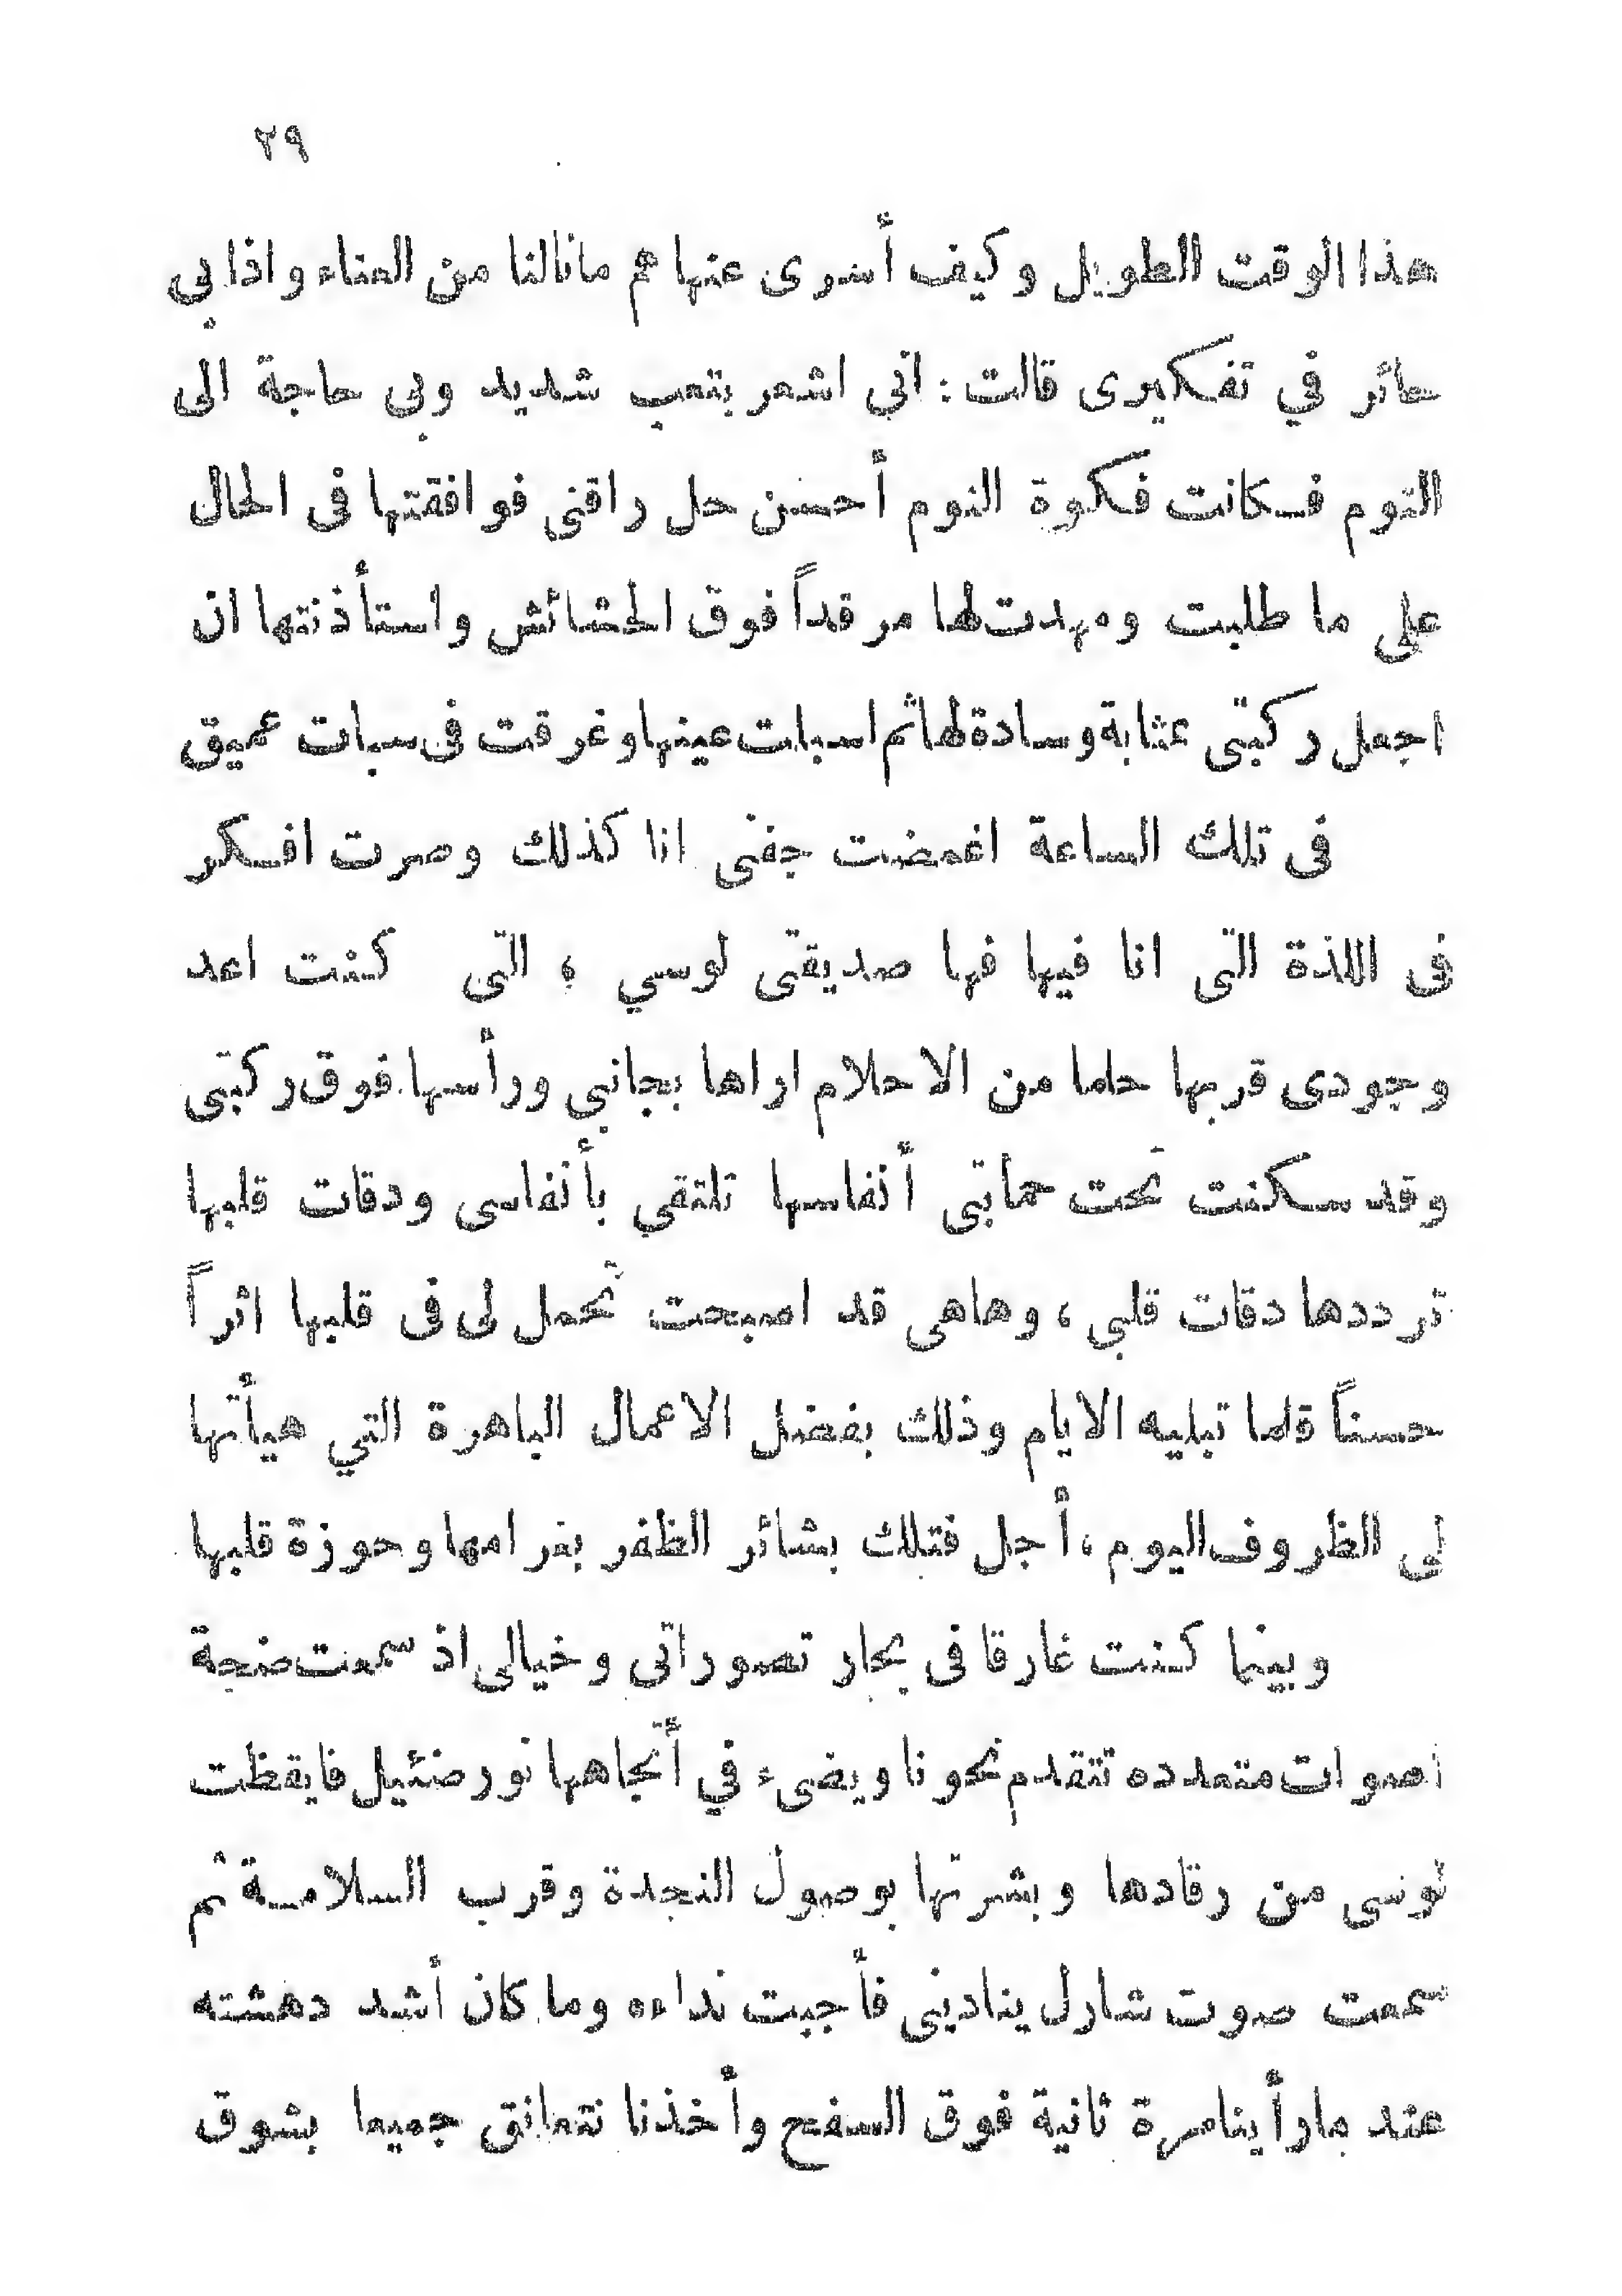 ٢٩
هذا الوقت الطويل وكيف أسرى عنها هم مانالنا من العناء واذا بي
حائر في تفكيرى قالت : انى اشعر بتعب شديد وبى حاجة الى
النوم فكانت فكرة النوم أحسن حل راقنى فوافقتها فى الحال
على ما طلبت ومهدت لها مرقداً فوق الحشائش واستأذنتها ان
اجعل ركبتى بمثابة وسادة لها ثم اسبلت عينها وغرقت فى سبات عميق
فى تلك الساعة اغمضت جفنى انا كذلك وصرت افكر
فى اللذة التى انا فيها فها صديقتى لوسي ، التى كنت اعد
وجودى قربها حلما من الاحلام اراها بجانبي ورأسها فوق ركبتى
وقد سكنت تحت حمايتى أنفاسها تلتقي بأنفاسى ودقات قلبها
ترددها دقات قلبي ، وهاهى قد اصبحت تحمل لى فى قلبها اثراً
حسناً قلما تبليه الايام وذلك بفضل الاعمال الباهرة التي هيأتها
لى الظروف اليوم ، أجل فتلك بشائر الظفر بغرامها وحوزة قلبها
وبينما كنت غارقا فى بحار تصوراتى وخيالى اذ سمعت ضجة
اصوات متعدده تتقدم نحونا ويضىء في أتجاهها نور ضئيل فايقظت
لوسى من رقادها وبشرتها بوصول النجدة وقرب السلامة ثم
سمعت صوت شارل ينادينى فأجبت نداءه وما كان أشد دهشته
عند مارأينا مرة ثانية فوق السفح وأخذنا نتعانق جميعا بشوق